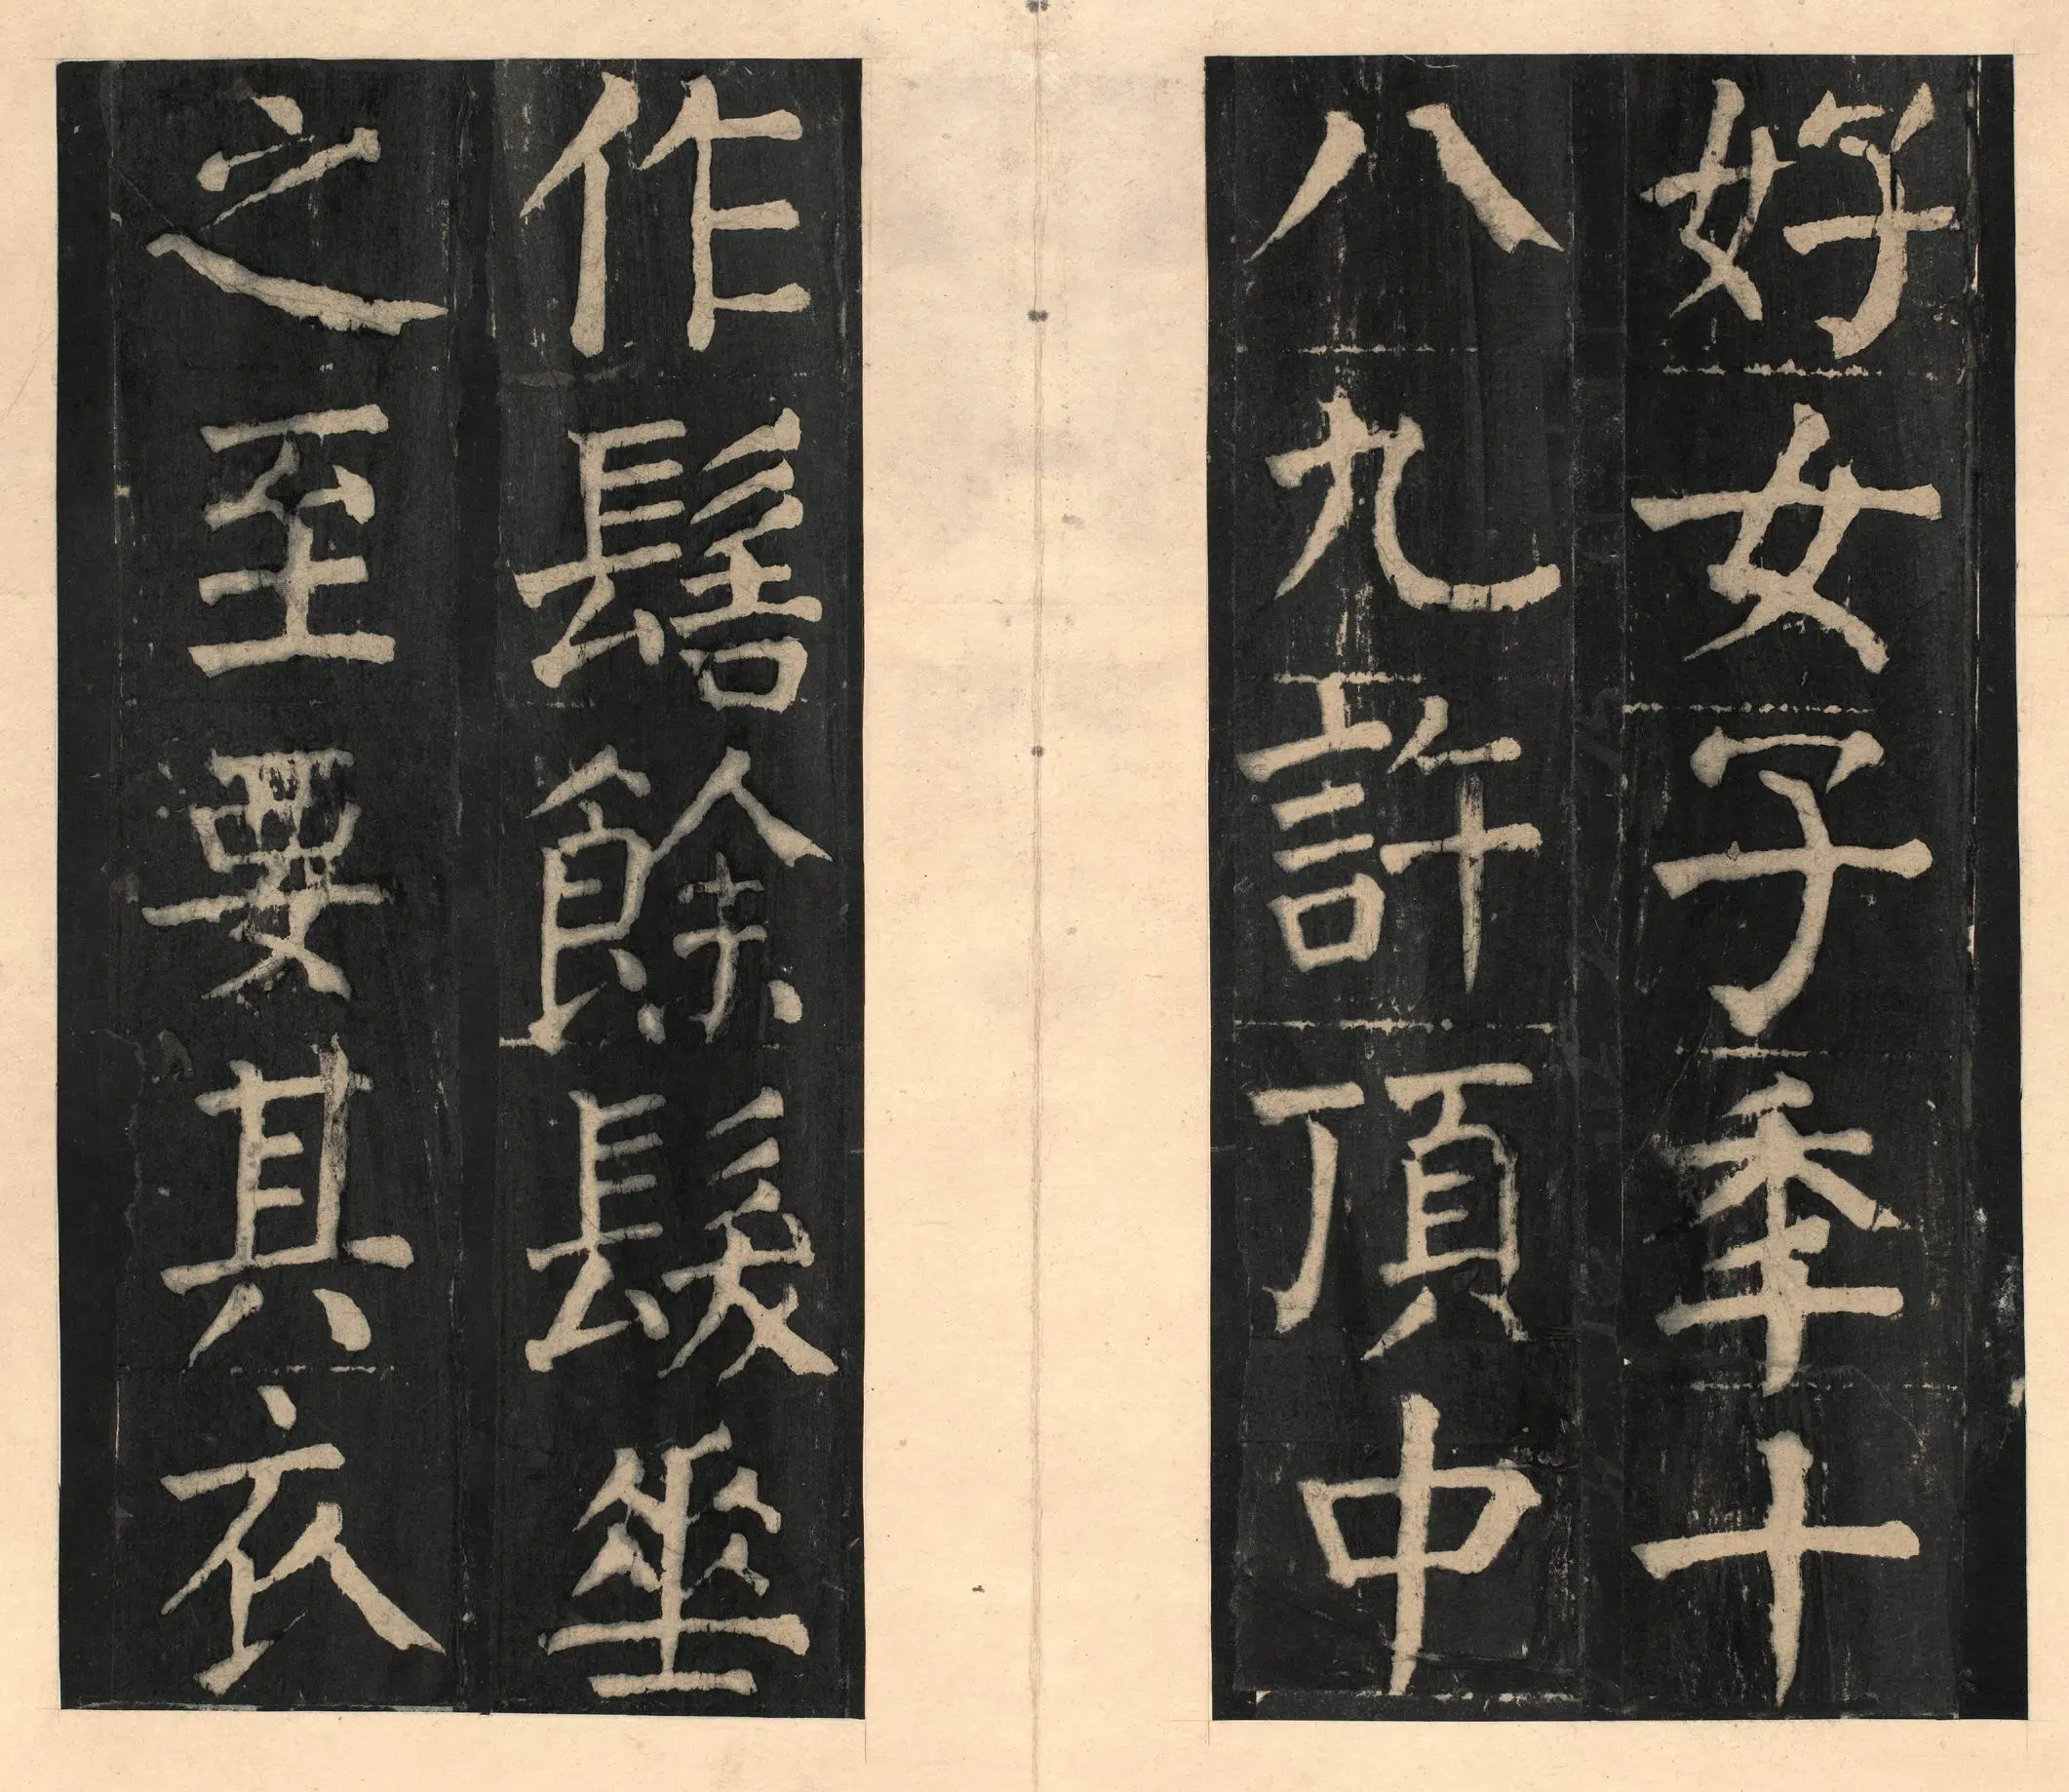 好女子秊十
八九許頂中
作髻餘髮垂
之至要其衣